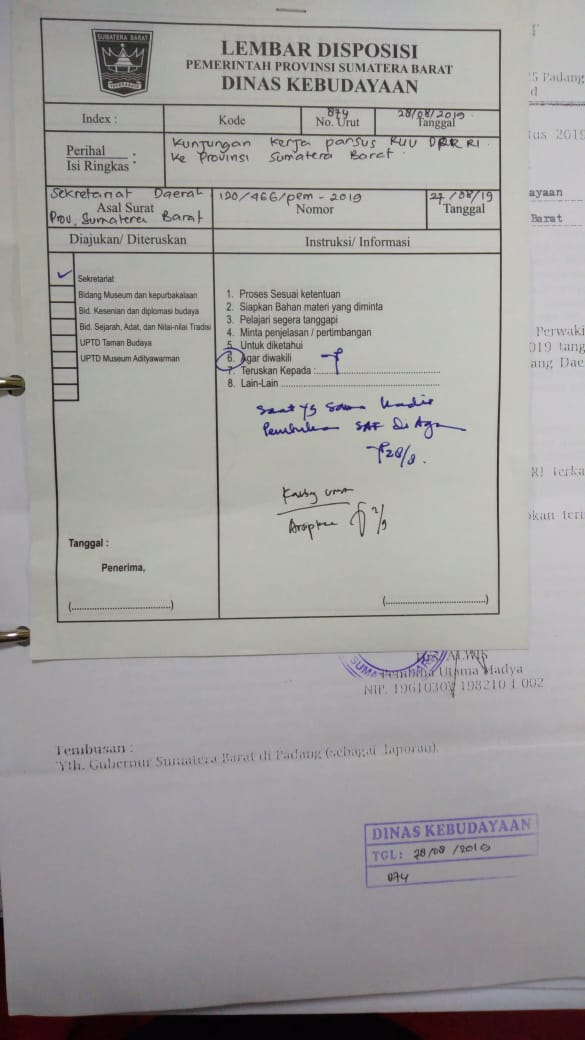 SUMATERA BARAT
LEMBAR DISPOSISI
PEMERINTAH PROVINSI SUMATERA BARAT
DINAS KEBUDAYAAN
Index :
Kode
874
No. Urut
28/08/2019
Tanggal
Perihal
Isi Ringkas :
Kunjungan kerja pansus RUU DPR RI
Ke Provinsi Sumatera Barat
Sekretariat Daerah
Asal Surat
Prov. Sumatera Barat
120/466/pem-2019
Nomor
27/08/19
Tanggal
Diajukan/ Diteruskan
Instruksi/ Informasi
Sekretariat
Bidang Museum dan kepurbakalaan
Bid. Kesenian dan diplomasi budaya
Bid. Sejarah, Adat, dan Nilai-nilai Tradisi
UPTD Taman Budaya
UPTD Museum Adityawarman
1. Proses Sesuai ketentuan
2. Siapkan Bahan materi yang diminta
3. Pelajari segera tanggapi
4. Minta penjelasan / pertimbangan
5. Untuk diketahui
6. Agar diwakili
7. Teruskan Kepada :
8. Lain-Lain
Saat yg sama Kadis
Pembukaan SAF Di Agam
28/8.
Kasbg umum
Arsipkan 2/9
Tanggal :
Penerima,
(..............................)
(..............................)
5 Padang
tus 2019
ayaan
Barat
Perwaki
019 tang
ang Dae
RI terka
pkan teri
SUMATERA BARAT
Pembina Utama Madya
NIP. 1961030 198210 1 002
Tembusan :
Yth. Gubernur Sumatera Barat di Padang (sebagai laporan).
DINAS KEBUDAYAAN
TGL : 28/08/2019
874